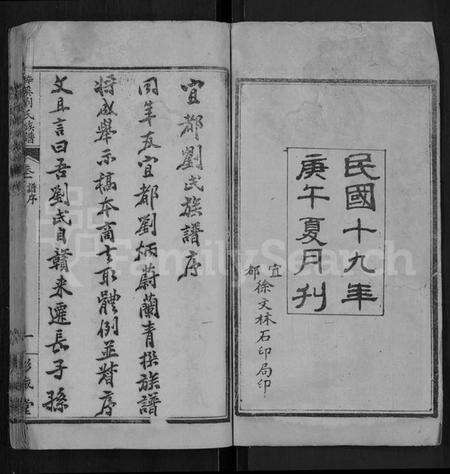 民國十九年
庚午夏月刊
宜都徐文林石印局印
宜都劉氏族譜序
同年友宜都劉炳蔚蘭青撰族譜
將成舉示稿本商去取體例並督序
文且言曰吾劉氏自贛來遷長子孫
劉氏族譜
卷一 譜序
一
FamilySearch